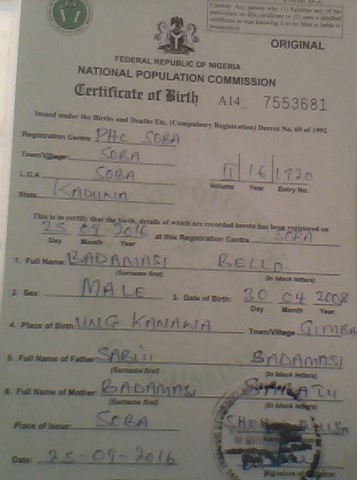 Caution: Any person who (1) Falsifies any of the
particulars on this certificate or (2) uses a falsified
certificate as true knowing it to be false is liable to
prosecution.
ORIGINAL
FEDERAL REPUBLIC OF NIGERIA
NATIONAL POPULATION COMMISSION
Certificate of Birth A14_ 7553681
Issued under the Births and Deaths Etc. (Compulsory Registration) Decree No. 69 of 1992
Registration Centre PHC SOBA
Town/Village SOBA
L.G.A. SOBA II 16 1920
State KADUNA Volume Year Entry No.
This is to certify that the birth, details of which are recorded herein has been registered on
25 09 2016 at this Registration Centre SOBA
Day Month Year
1. Full Name: BADAMASI BELLO
(Surname first) (In block letters)
2. Sex: MALE 3. Date of Birth: 30 04 2008
Day Month Year
4. Place of Birth: UNG KANAWA Town/Village GIMBA
5. Full Name of Father: BADAMASI
(Surname first) (In block letters)
6. Full Name of Mother: BADAMASI
(Surname first) (In block letters)
Place of Issue: SOBA
Date: 25-09-2016
Signature of Registrar